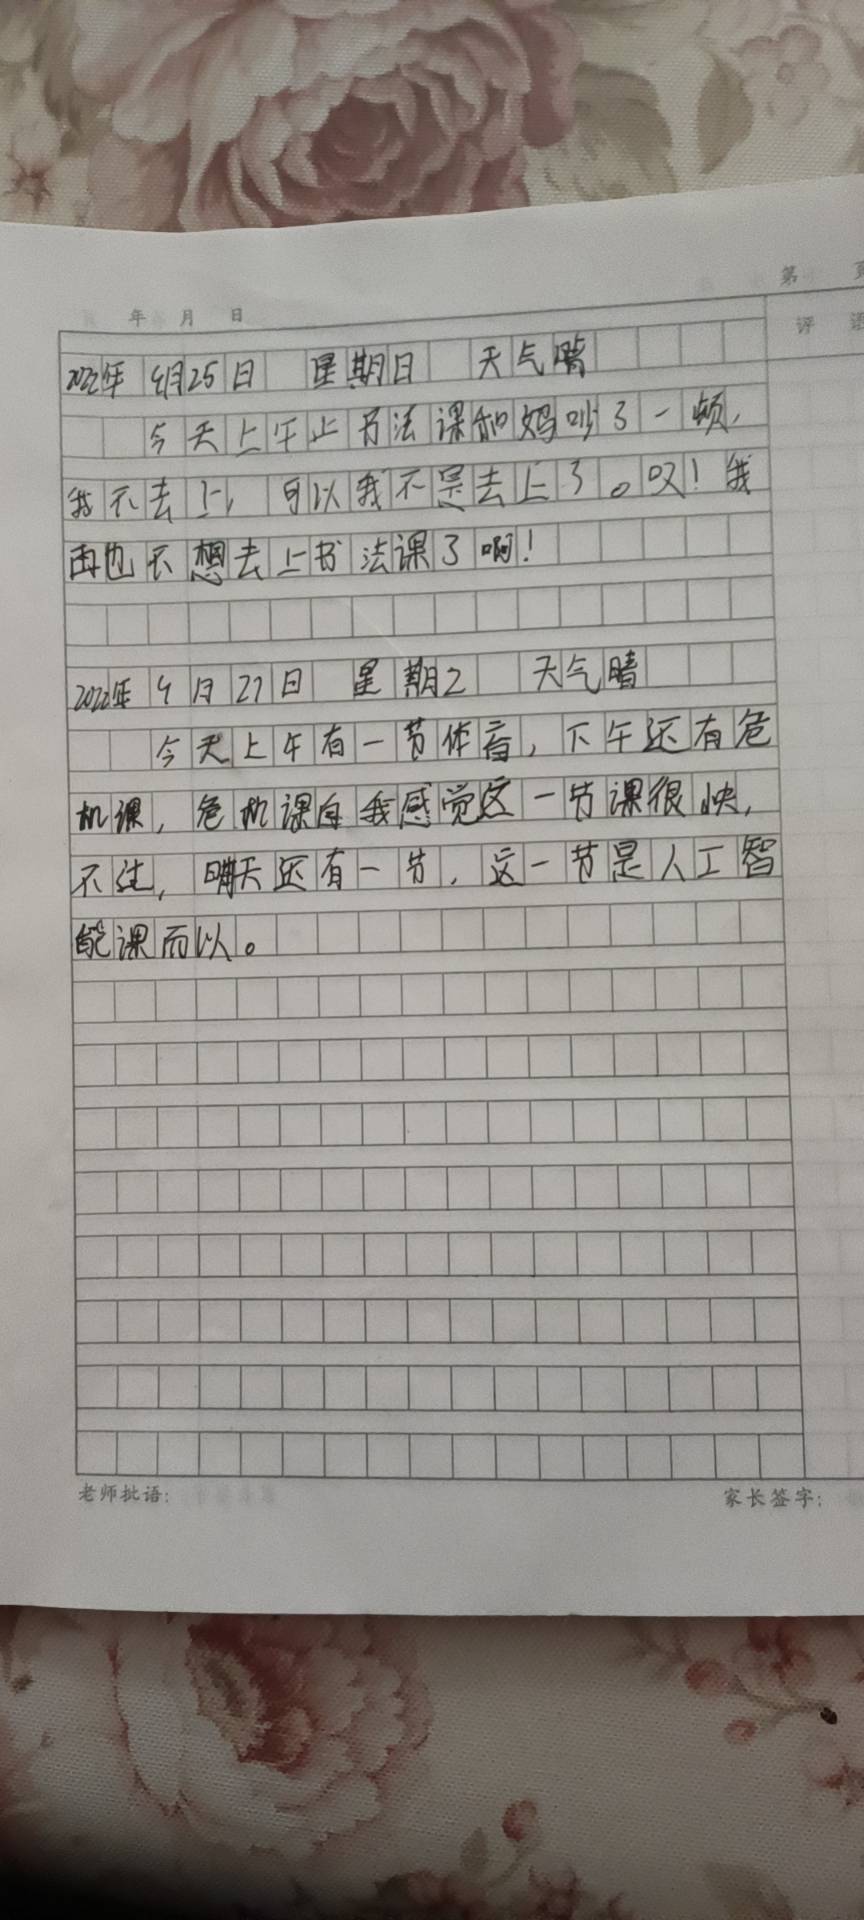 第 页
年 月 日
评 语
2022年 4月25日 星期日 天气晴
今天上午上书法课和妈吵了一顿,
我不去上, 可以我不是去上了。叹!我
再也不想去上书法课了啊!
2022年 4月27日 星期2 天气晴
今天上午有一节体育, 下午还有危
机课, 危机课自我感觉这一节课很快,
不过, 明天还有一节, 这一节是人工智
能课而以。
老师批语:
家长签字: